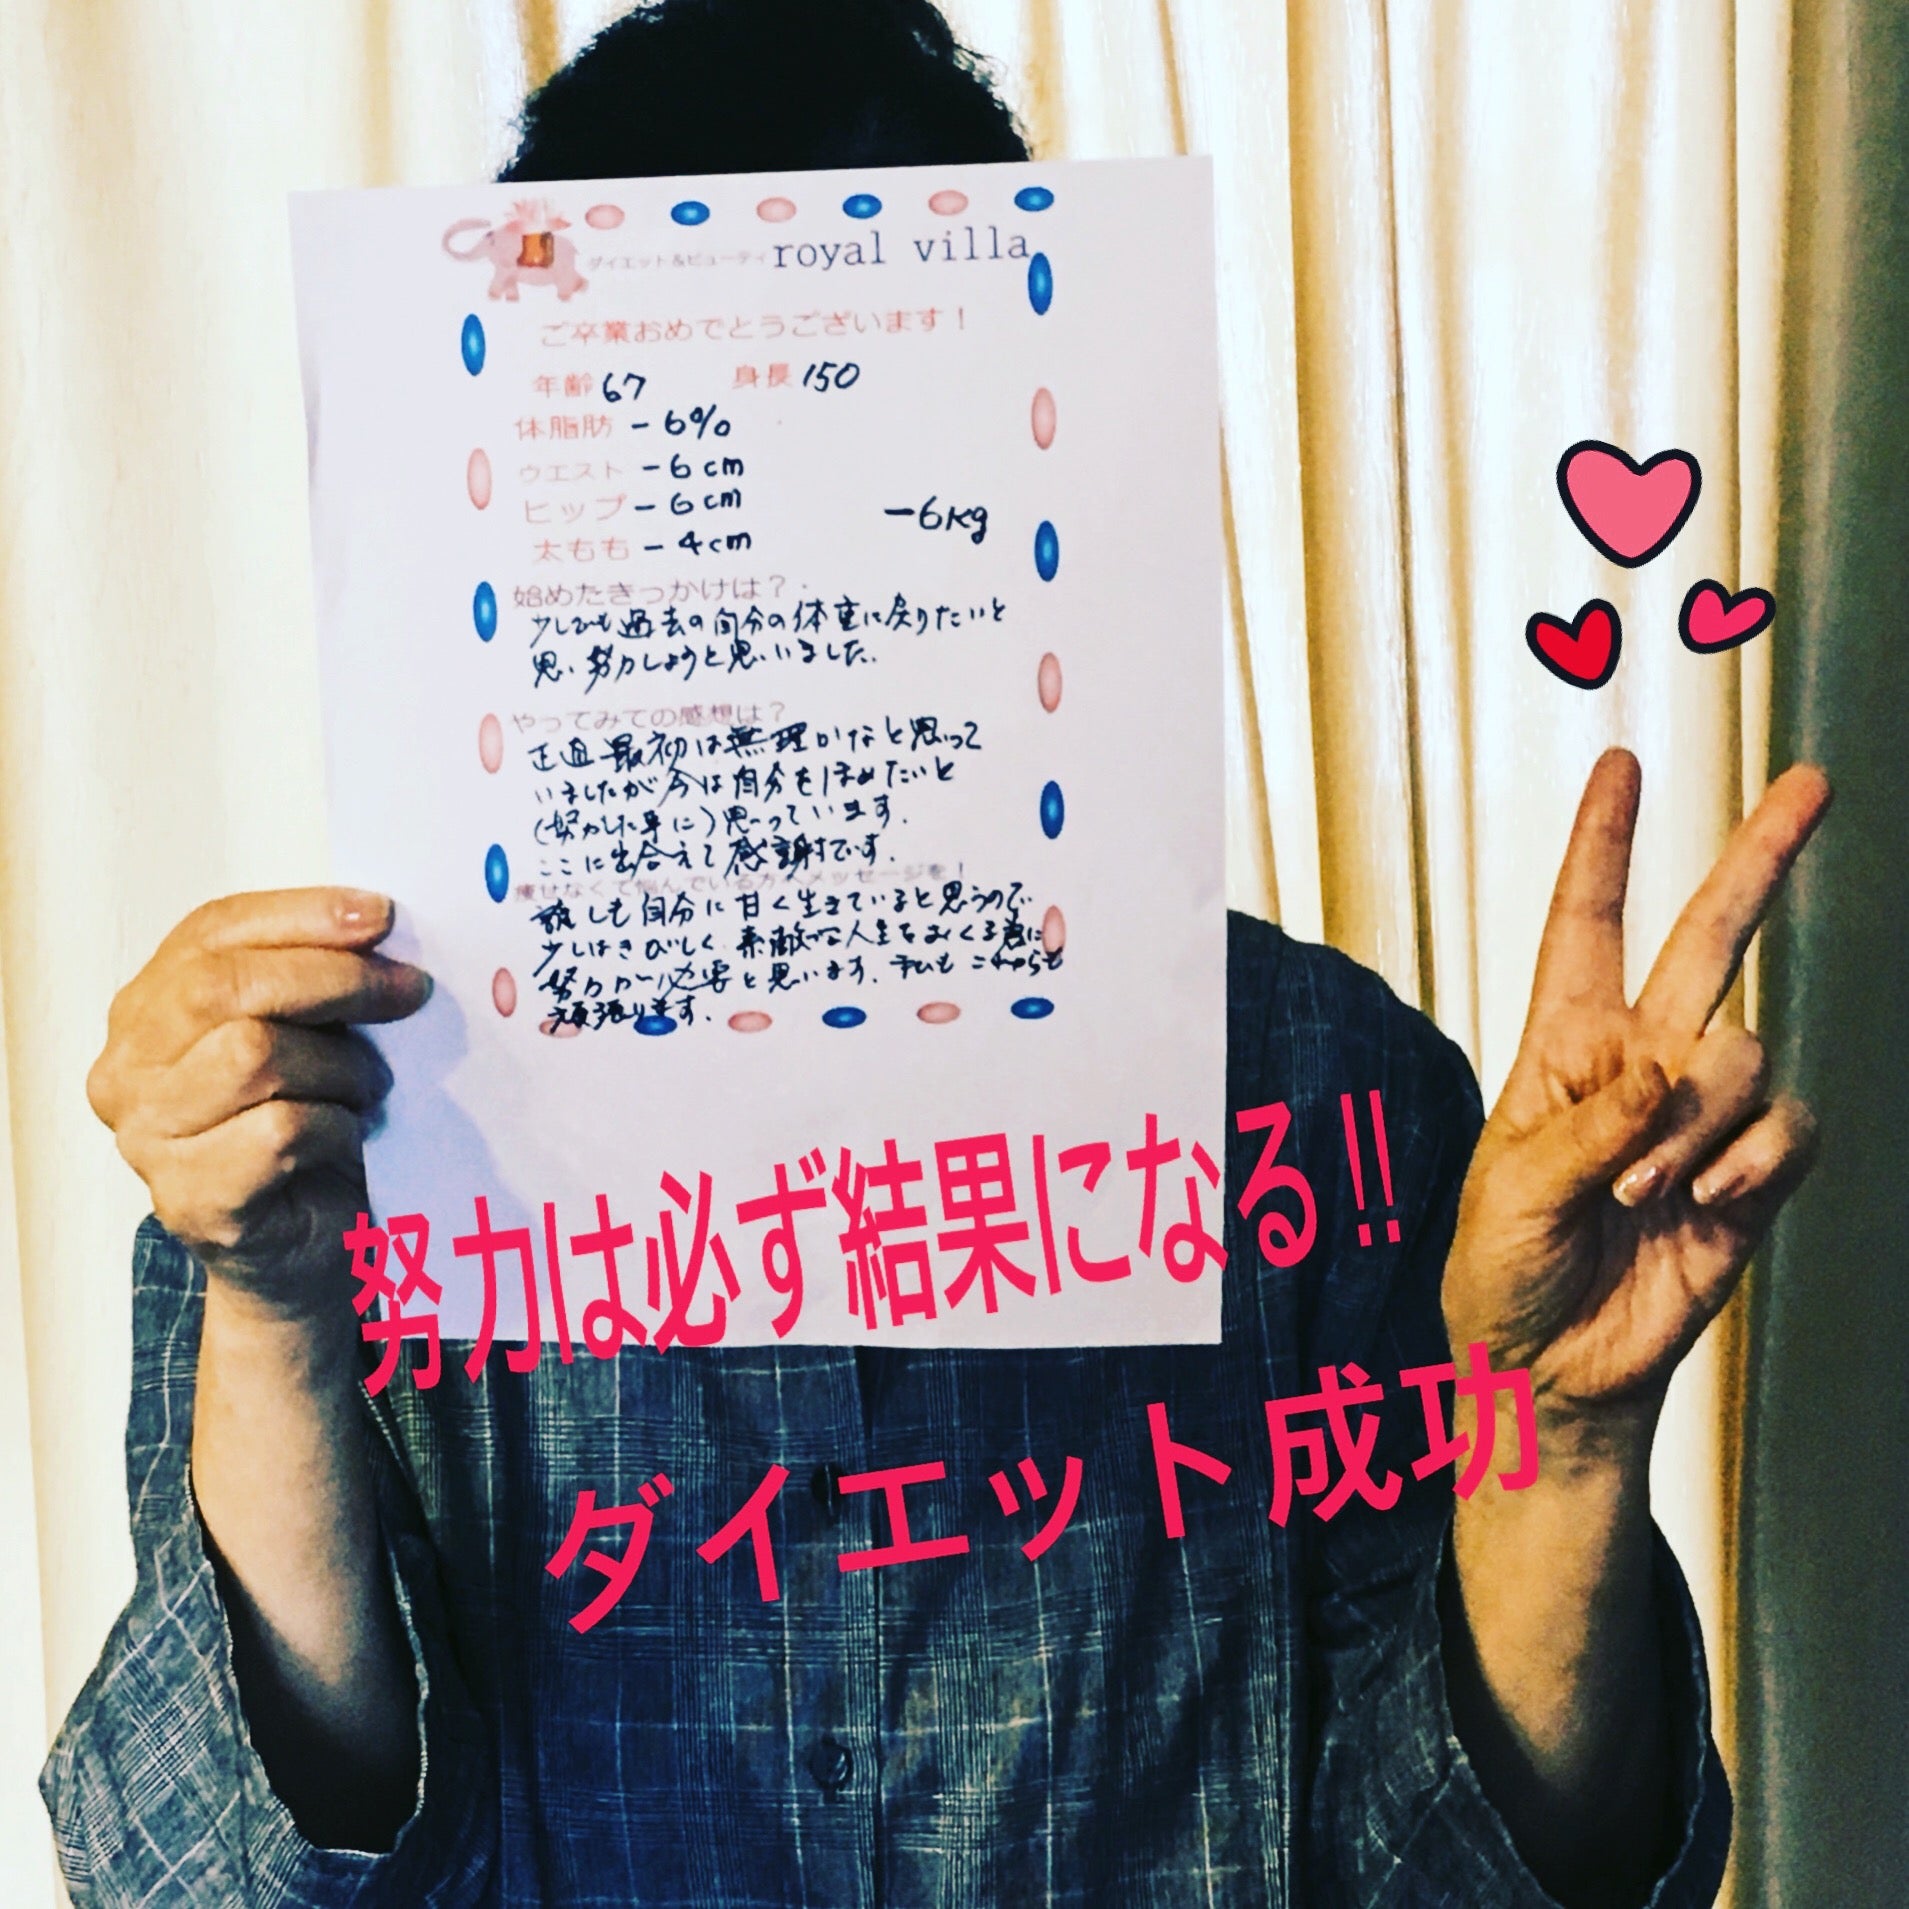 ダイエット&ビューティ royal villa
ご卒業おめでとうございます！
年齢 67 身長 150
体脂肪 -6%
ウエスト -6cm
ヒップ -6cm
-6kg
太もも -4cm
始めたきっかけは？
少しでも過去の自分の体重に戻りたいと
思い努力しようと思いました。
やってみての感想は？
正直最初は無理かなと思って
いましたが今は自分をほめたいと
(努力した事に)思っています。
ここに出合えて感謝です。
痩せなくて悩んでいる方へメッセージを！
誰しも自分に甘く生きていると思うので
少しはきびしく素敵な人生をおくる為に
努力が必要と思います。私もこれからも
頑張ります。
努力は必ず結果になる!!
ダイエット成功